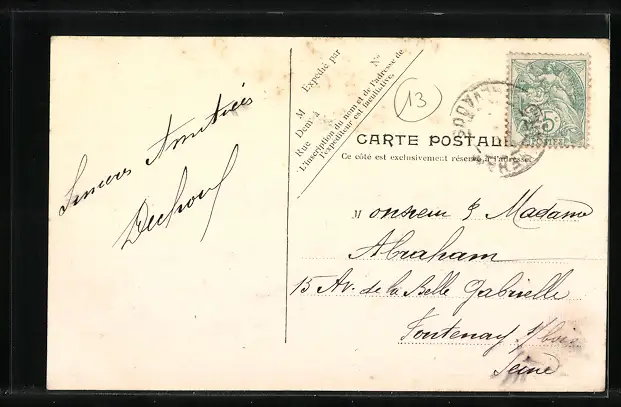 Sincères Amitiés
Expédié par
M
Demt à
Rue
No
L'inscription du nom et de l'adresse de
l'expéditeur est facultative.
13
CARTE POSTALE
Ce côté est exclusivement réservé à l'adresse
Monsieur & Madame
Abraham
15 Av. de la Belle Gabrielle
Fontenay s/bois
Seine